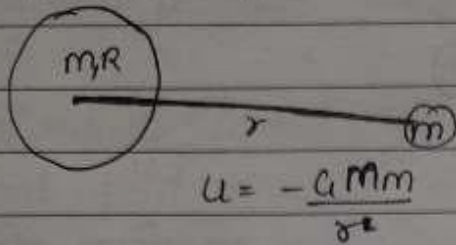 M,R
r
m
U = - GMm
r